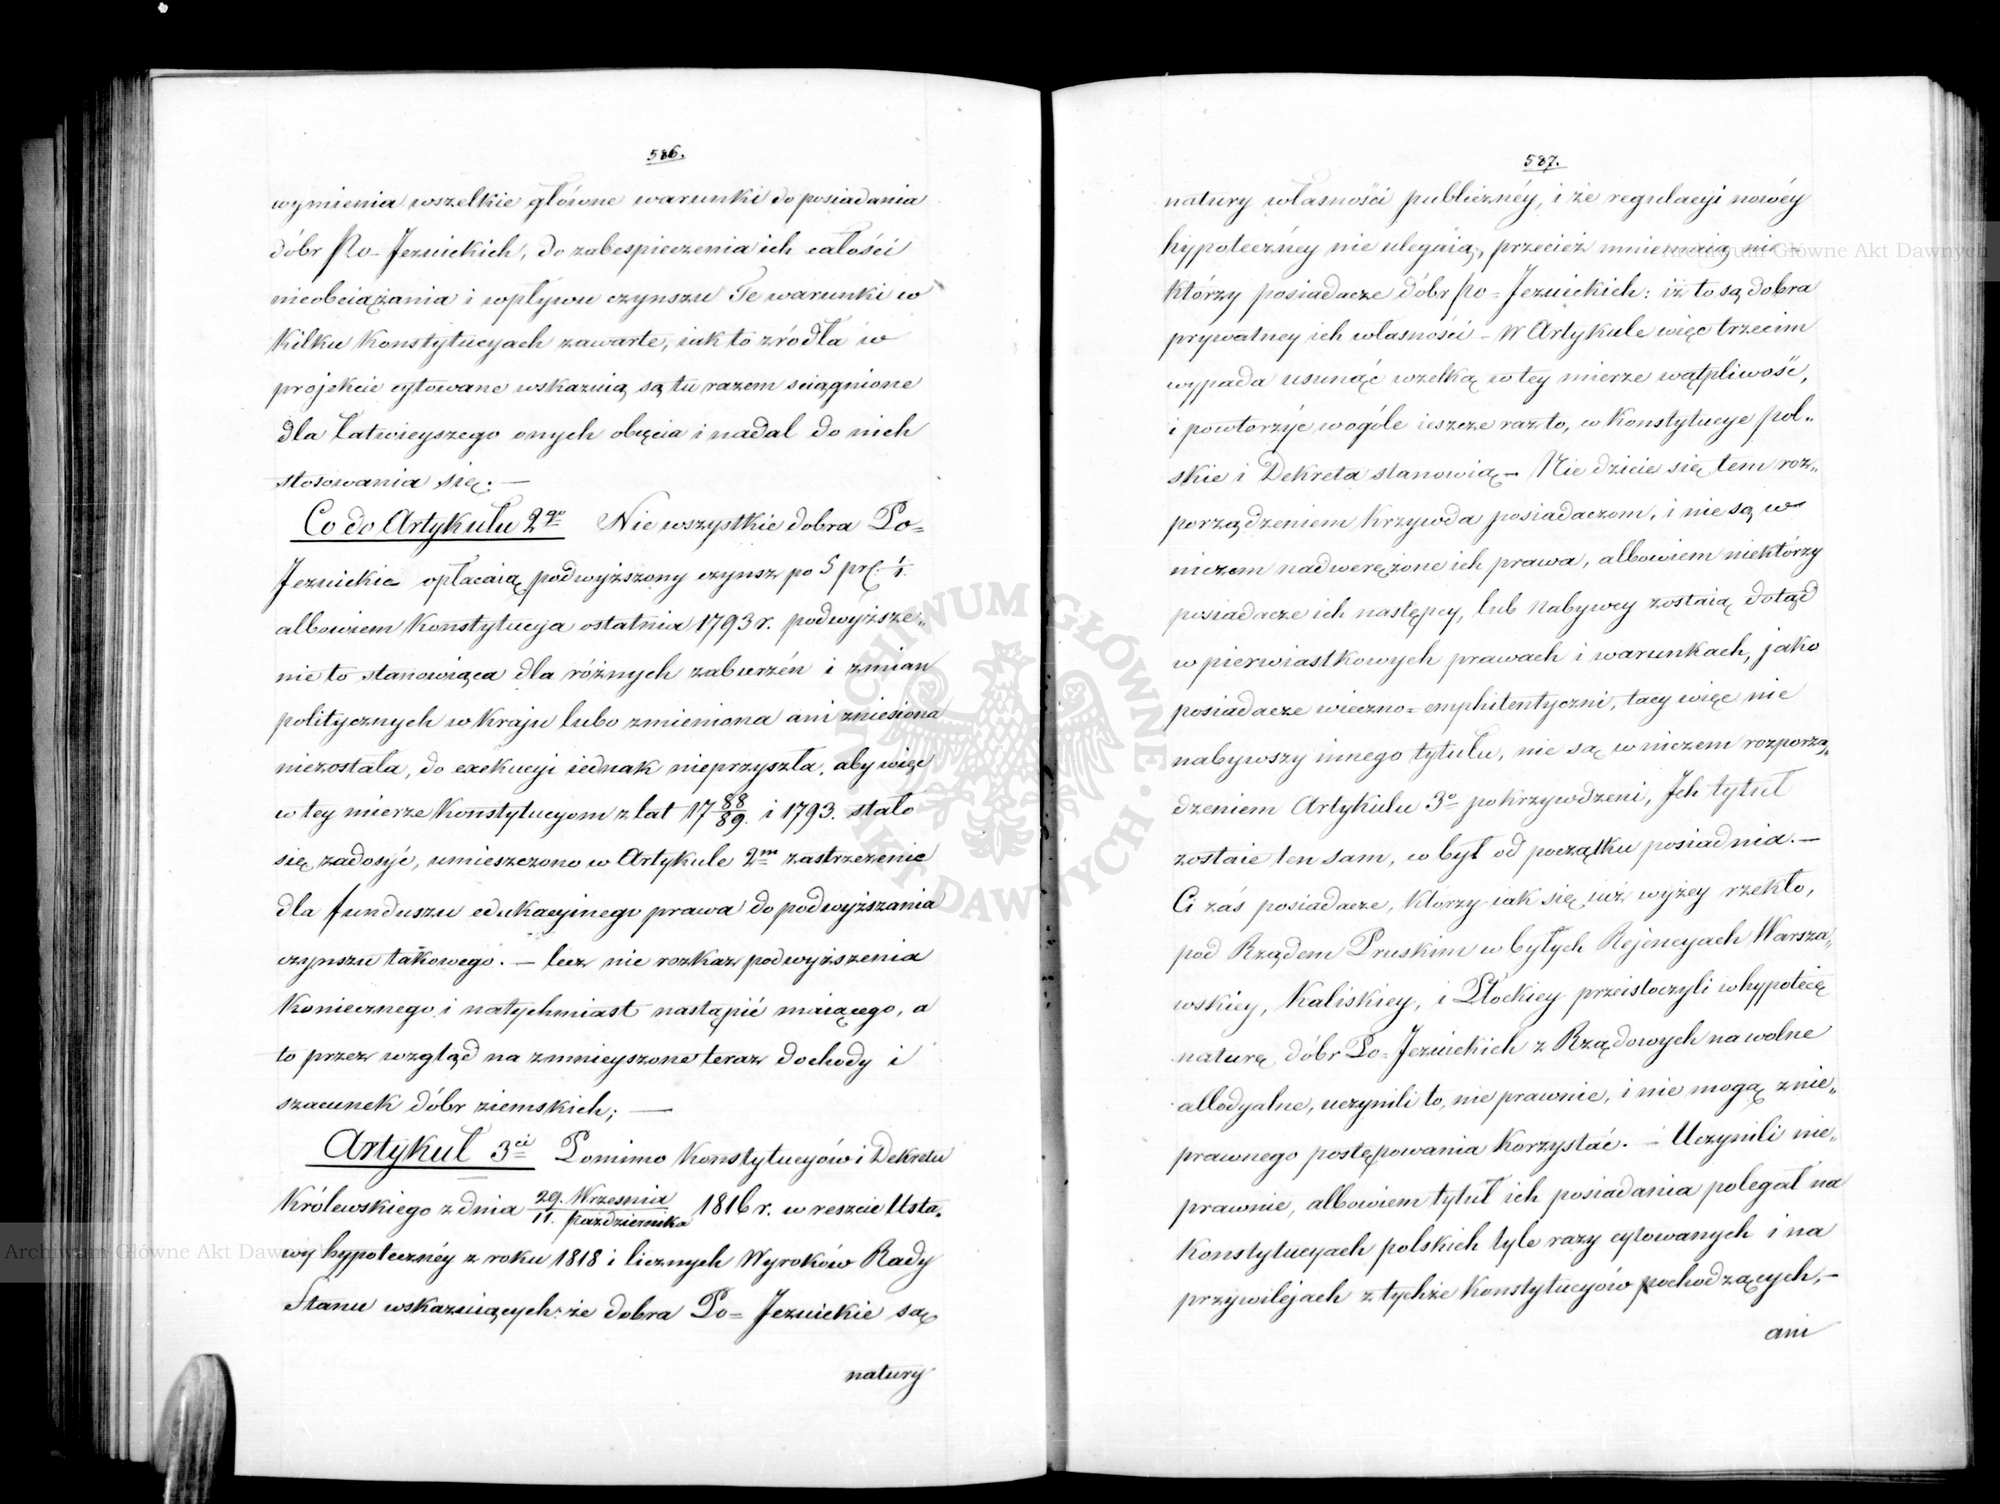 586.
wymienia wszelkie główne warunki do posiadania
dóbr Po-Jezuickich, do zabespieczenia ich całości
nieobciążania i wpływu czynszu Te warunki w
kilku Konstytucyach zawarte, iak to źródła w
projekcie cytowane wskazuią są tu razem sciągnione
dla łatwieyszego onych obięcia i nadal do nich
stosowania się. —
Co do Artykułu 2go Nie wszystkie dobra Po=
Jezuickie opłacaią podwyższony czynsz po 5 prc.
albowiem Konstytucya ostatnia 1793 r. podwyższe„
nie to stanowiąca dla różnych zaburzén i zmian
politycznych w Kraju lubo zmieniona ani zniesiona
niezostała, do exekucyi iednak nieprzyszła, aby więc
w tey mierze Konstytucyom z lat 17 88/89. i 1793. stało
się zadosyć, umieszczono w Artykule 2m zastrzeżenie
dla funduszu edukacyinego prawa do podwyższania
czynszu takowego. — lecz nie rozkaz podwyższenia
Koniecznego i natychmiast nastąpić maiącego, a
to przez wzgląd na zmnieyszone teraz dochody i
szacunek dóbr ziemskich; —
Artykuł 3ci Pomimo Konstytucyów i Dekretu
Królewskiego z dnia 29. Września / 11. Października 1816 r. w reszcie Usta„
wy hypotecznéy z roku 1818 i licznych Wyroków Rady
Stanu wskazuiących że dobra Po=Jezuickie są
natury
587.
natury własności publicznéy, i że regulacyi nowéy
hypotecznéy nie ulegaią, przecież mniemaią nie-
którzy posiadacze dóbr Po=Jezuickich: iż to są dobra
prywatney ich własności – W Artykule więc trzecim
wypada usunąć wzelką w tey mierze wątpliwość,
i powtorzyć wogóle ieszcze raz to, co Konstytucye pol„
skie i Dekreta stanowią – Nie dzieie się tem roz„
porządzeniem Krzywda posiadaczom, i nie są w
niczem nadwerężone ich prawa, albowiem niektórzy
posiadacze ich następcy, lub nabywcy zostaią dotąd
w pierwiastkowych prawach i warunkach, jako
posiadacze wieczno=emphitentyczni, tacy więc nie
nabywszy innego tytułu, nie są w niczem rozporzą„
dzeniem Artykułu 3o pokrzywdzeni, Ich tytuł
zostaie ten sam, co był od początku posiadnia. —
Ci zaś posiadacze, Którzy iak się iuż wyżey rzekło,
pod Rządem Pruskim w byłych Rejencyach Warsza„
wskiey, Kaliskiey, i Płockiey przeistoczyli w hypotecę
naturę dóbr Po=Jezuickich z Rządowych na wolne
allodyalne, uczynili to, nie prawnie, i nie mogą z nie„
prawnego postępowania Korzystać. — Uczynili nie„
prawnie, albowiem tytuł ich posiadania polegał na
Konstytucyach polskich tyle razy cytowanych i na
przywilejach z tychże Konstytucyów pochodzących, –
ani
ARCHIWUM GŁÓWNE AKT DAWNYCH
Archiwum Główne Akt Dawnych
Archiwum Główne Akt Dawnych